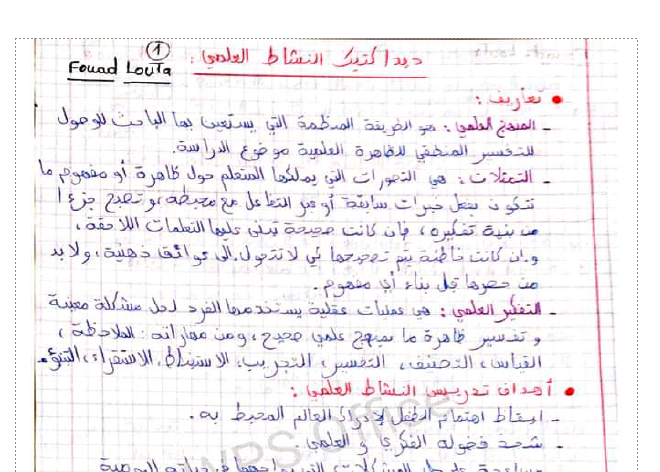 1
ديداكتيك النشاط العلمي :
Fouad Louta
• تعاريف :
- المنهج العلمي : هو الطريقة المنظمة التي يستعين بها الباحث للوصول
للتفسير المنطقي للظاهرة العلمية موضوع الدراسة.
- التمثلات : هي التصورات التي يملكها المتعلم حول ظاهرة أو مفهوم ما
تتكون بفعل خبرات سابقة أو عبر التفاعل مع محيطه، و تصبح جزءا
من بنية تفكيره ، فإن كانت صحيحة تبنى عليها التعلمات اللاحقة ،
و إن كانت خاطئة يتم تصحيحها كي لا تتحول إلى عوائق ذهنية، و لا بد
من حصرها قبل بناء أي مفهوم.
- التفكير العلمي : هي عمليات عقلية يستخدمها الفرد لحل مشكلة معينة
و تفسير ظاهرة ما بمنهج علمي صحيح ، ومن مهاراته : الملاحظة ،
القياس ، التصنيف ، التفسير ، التجريب ، الاستنباط ، الاستقراء ، التنبؤ.
• أهداف تدريس النشاط العلمي :
- إسقاط اهتمام الطفل لإدراك العالم المحيط به .
- شحذ فضوله الفكري و العلمي .
WPS Office